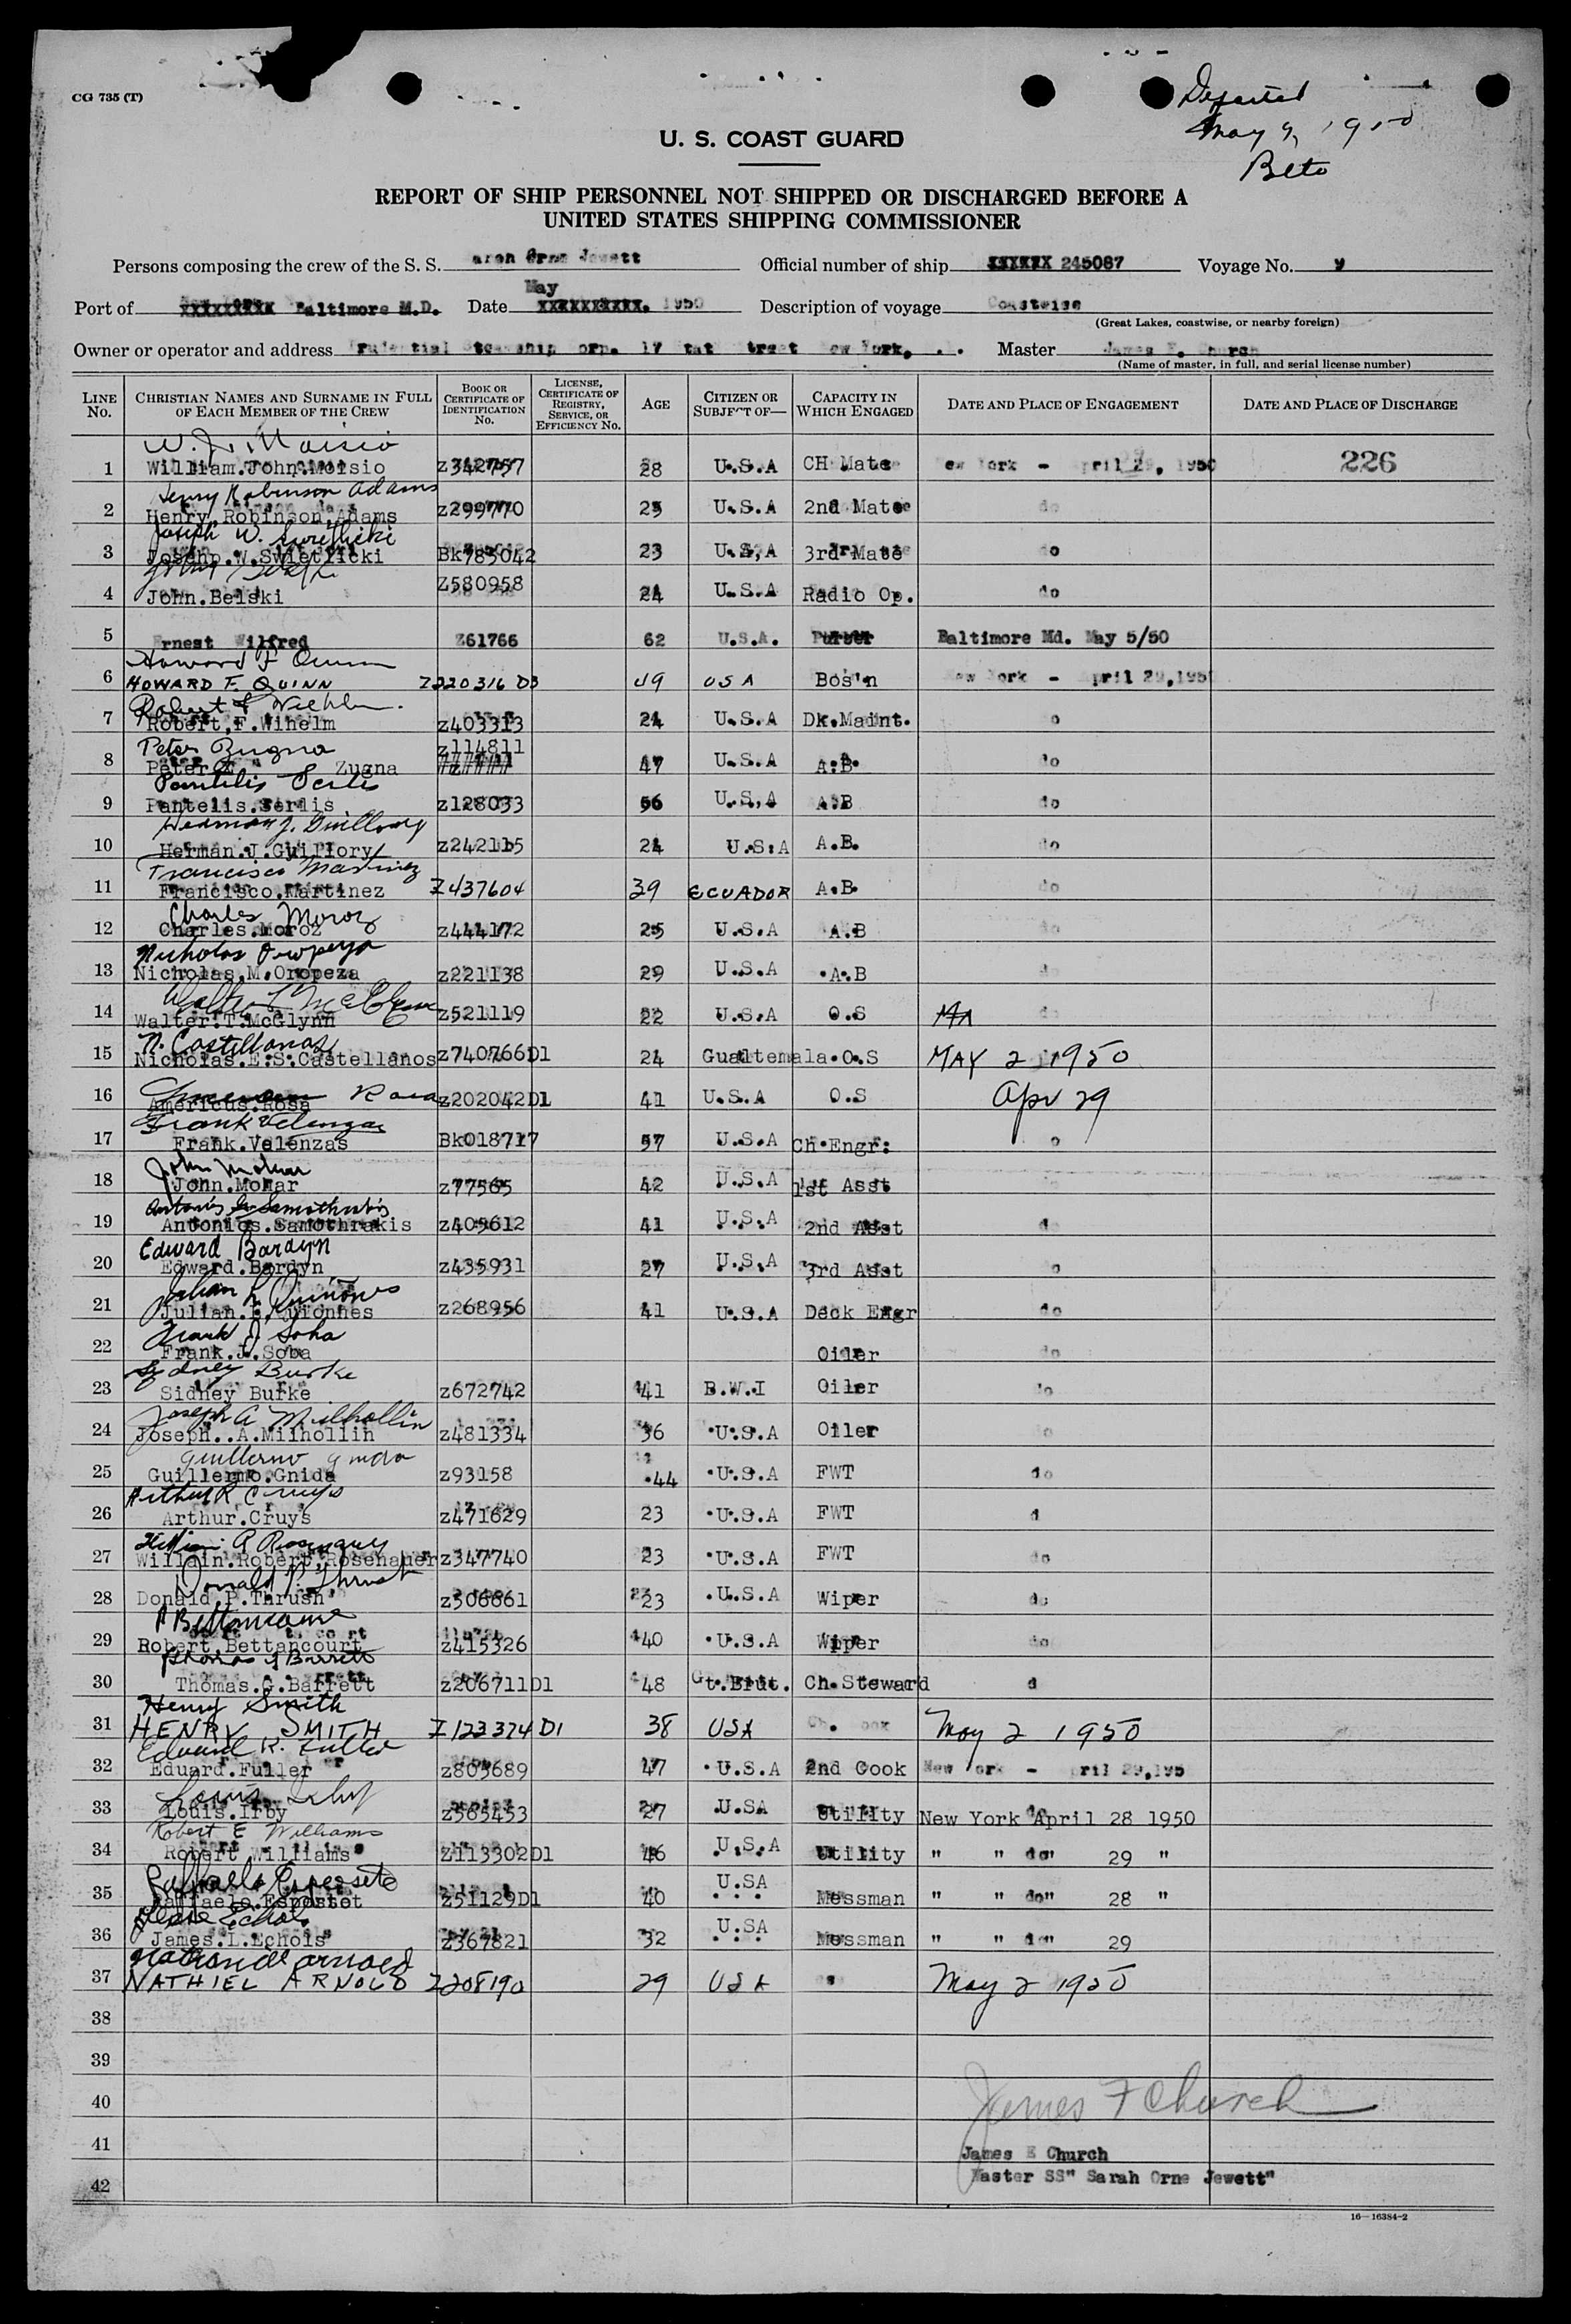 CG 735 (T)
Departed
May 9, 1950
Balto
U. S. COAST GUARD
REPORT OF SHIP PERSONNEL NOT SHIPPED OR DISCHARGED BEFORE A
UNITED STATES SHIPPING COMMISSIONER
Persons composing the crew of the S. S. arah Orne Jewett Official number of ship XXXXXX 245087 Voyage No. 9
May
Port of XXXXXXXXX Baltimore M.D. Date XXXXXXXXXX. 1950 Description of voyage Coastwise
(Great Lakes, coastwise, or nearby foreign)
Owner or operator and address rudential Steamship orp. 17 tat treet ew York, . . Master James F. Church
(Name of master, in full, and serial license number)
LINE No. CHRISTIAN NAMES AND SURNAME IN FULL OF EACH MEMBER OF THE CREW BOOK OR CERTIFICATE OF IDENTIFICATION No. LICENSE, CERTIFICATE OF REGISTRY, SERVICE, OR EFFICIENCY No. AGE CITIZEN OR SUBJECT OF— CAPACITY IN WHICH ENGAGED DATE AND PLACE OF ENGAGEMENT DATE AND PLACE OF DISCHARGE
W. J. Moisio
1 William.John.Moisio z342757 28 U.S.A CH Mate ew York - pril 29, 1950 226
Henry Robinson Adams
2 Henry.Robinson.Adams z299770 25 U.S.A 2nd Mate do
Joseph W. Swietlicki
3 Josehp.W.Swietlicki Bk785042 23 U.S,A 3rd Mate do
John Belski
4 John.Belski Z580958 24 U.S.A Radio Op. do
5 Ernest Wilfred Z61766 62 U.S.A. Purser Baltimore Md. May 5/50
Howard F Quinn
6 HOWARD F. QUINN Z220316 D3 49 USA Bos'n ew York - pril 29,195
Robert F Wiehlm.
7 Robert.F.Wihelm z403313 24 U.S.A Dk.Maint. o
Peter Zugna z114811
8 Peter Zugna 47 U.S.A A.B. do
Pantelis Serlis
9 Pantelis.Serlis z128033 56 U.S,A A.B do
Herman J. Guillory
10 Herman.J.Guillory z242115 24 U.S.A A.B. do
Francisco Martinez
11 Francisco.Martinez Z437604 39 ECUADOR A.B. do
Charles Moroz
12 Charles.Moroz z444172 25 U.S.A A.B do
Nicholas Oropeza
13 Nicholas.M.Oropeza z221138 29 U.S.A A.B d
Walter T McGlynn
14 Walter.T.McGlynn z521119 22 U.S.A O.S MA do
N. Castellanos
15 Nicholas.E.S.Castellanos z740766D1 24 Guatemala O.S MAY 2 1950
Rosa
16 Americus.Rosa z202042D1 41 U.S.A O.S Apr 29
Frank Velenzas
17 Frank.Valenzas Bk018717 57 U.S.A Ch Engr: o
John Molnar
18 John.Molnar z77565 42 U.S.A 1st Asst
Antonios Samothrakis
19 Antonios.Samothrakis z409612 41 U.S.A 2nd Asst d
Edward Bardyn
20 Edward.Bardyn z435931 27 U.S.A 3rd Asst o
Julian L. Quiñones
21 Julian.L.Quionhes z268956 41 U.S.A Deck Engr do
Frank J Soha
22 Frank.J.Soba Oiler do
Sydney Burke
23 Sidney Burke z672742 41 B.W.I Oiler do
Joseph A Milhollin
24 Joseph..A.Milhollin z481334 36 U.S.A Oiler do
Guillermo Gnida
25 Guillermo.Gnida z93158 44 U.S.A FWT do
Arthur R Cruys
26 Arthur.Cruys z471629 23 U.S.A FWT d
William R Rosenauer
27 Willain.Robert.Rosenauer z347740 23 U.S.A FWT do
Donald P. Thrush
28 Donald.P.Thrush z506861 23 U.S.A Wiper do
R Bettancourt
29 Robert.Bettancourt z415326 40 U.S.A Wiper do
Thomas G Barrett
30 Thomas.G.Barrett z206711D1 48 Gt.Brit. Ch.Steward d
Henry Smith
31 HENRY SMITH Z123374 D1 38 USA Ch. ook May 2 1950
Eduard R. Fuller
32 Eduard.Fuller z803689 47 U.S.A 2nd Cook New York - pril 29,195
Louis Irby
33 Louis.Irby z565453 27 U.SA Utility New York April 28 1950
Robert E Williams
34 Robert Williams Z113302D1 46 U.S.A Utility " " do" 29 "
Raffaele Esposito
35 Raffaele.Espositot z51129D1 40 U.SA Messman " " do" 28 "
Echols
36 James.L.Echols z367821 32 U.SA Messman " " do" 29
Nathaniel Arnold
37 NATHIEL ARNOLD Z208190 29 USA May 2 1950
38
39
40 James F Church
41 James E Church
42 Master SS" Sarah Orne Jewett"
16—16384-2